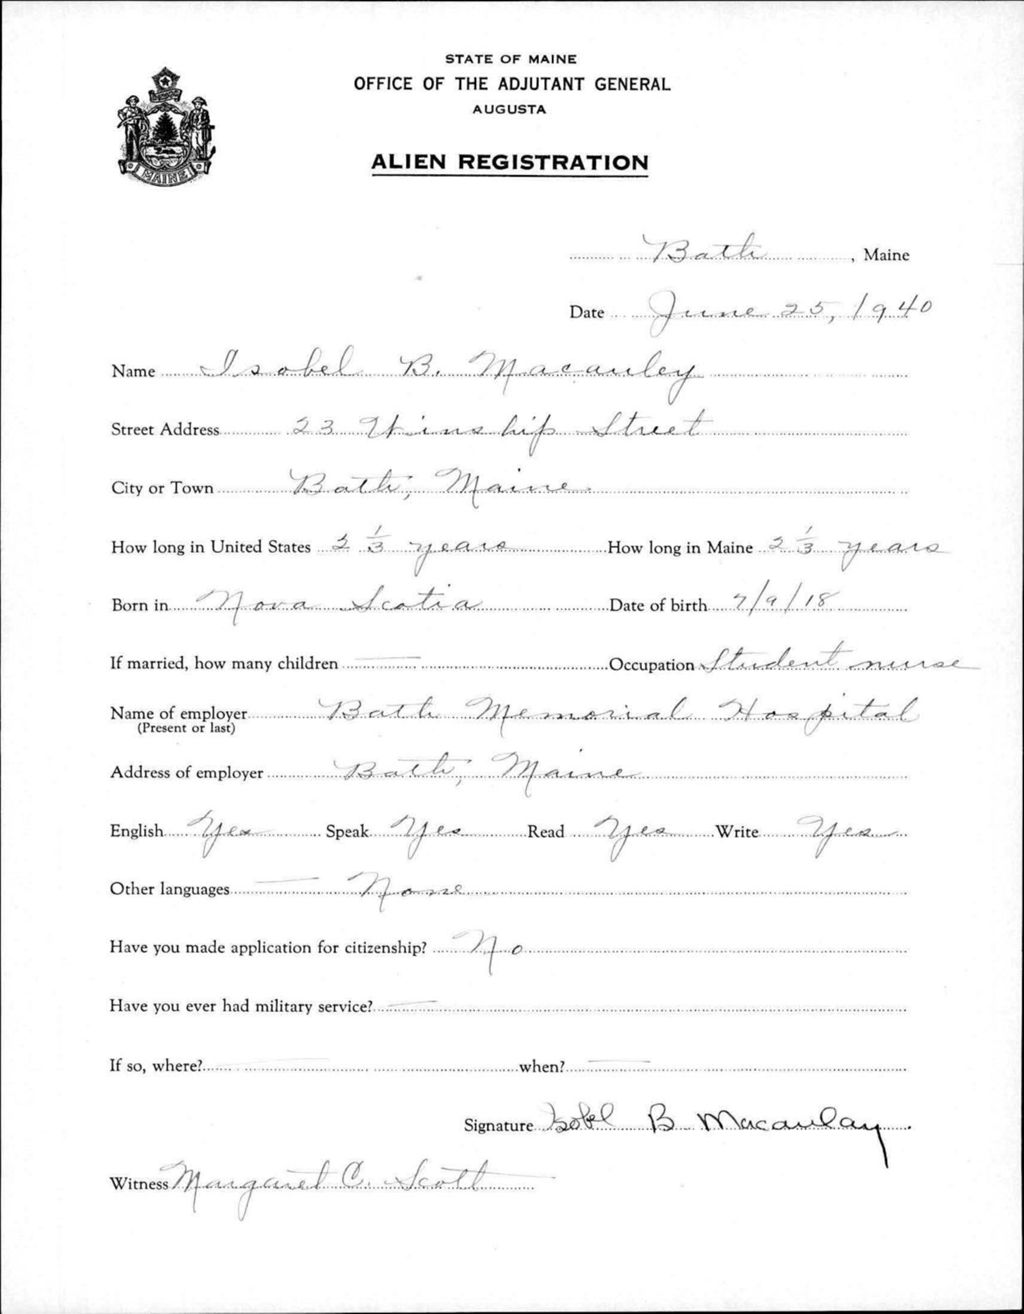 STATE OF MAINE
OFFICE OF THE ADJUTANT GENERAL
AUGUSTA
ALIEN REGISTRATION
MAINE
Bath, Maine
Date June 25, 1940
Name Isobel B. Macauley
Street Address 23 Winship Street
City or Town Bath, Maine
How long in United States 2 1/3 years How long in Maine 2 1/3 years
Born in Nova Scotia Date of birth 7/9/18
If married, how many children — Occupation Student nurse
Name of employer Bath Memorial Hospital
(Present or last)
Address of employer Bath, Maine
English Yes Speak Yes Read Yes Write Yes
Other languages — None
Have you made application for citizenship? No
Have you ever had military service? —
If so, where? — when? —
Signature Isobel B. Macaulay.
Witness Margaret C. Scott